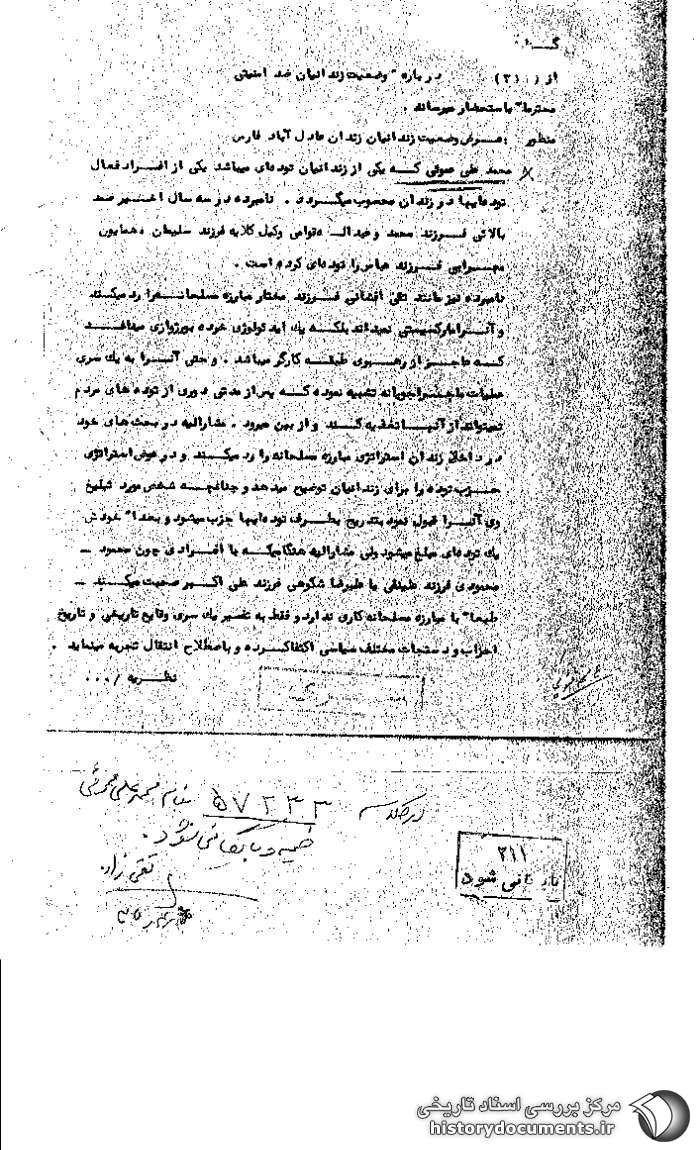 از ( (۲۱ درباره " وضعیت زندانیان ضد امنیتی
محترما" باستحضار میرساند .
منظور : عرض وضعیت زندانیان زندان عادل آباد فارس
محمد علی عموئی که یکی از زندانیان توده‌ای میباشد یکی از افراد فعال
توده‌ایها در زندان محسوب میگردد . نامبرده در سه سال اخیر صمد
بالائی فرزند محمد و عبداله قوامی وکیل کلایه فرزند سلیمان و همایون
فرزند عباس را توده‌ای کرده است .
نامبرده نیز مانند تقی افشانی فرزند مختار مبارزه مسلحانه را رد میکند
و آنرا مارکسیستی نمیداند بلکه یک ایدئولوژی خرده بورژوازی میداند
که عاجز از رهبری طبقه کارگر میباشد . و حتی آنرا به یک سری
عملیات ماجراجویانه تشبیه نموده که پس از مدتی دوری از توده های مردم
نمیتواند از آنها تغذیه کند و از بین میرود . مشارالیه در بحث های خود
در داخل زندان استراتژی مبارزه مسلحانه را رد میکند و در عوض استراتژی
حزب توده را برای زندانیان توضیح میدهد و چنانچه شخص مورد تبلیغ
وی آنرا قبول نمود بتدریج بطرف توده‌ایها جزب میشود و بعدا" خودش
یک توده‌ای مبلغ میشود ولی مشارالیه هنگامیکه با افرادی چون محمود -
محمودی فرزند علینقی یا علیرضا شکوهی فرزند علی اکبر صحبت میکند -
طبعا" با مبارزه مسلحانه کاری ندارد و فقط به تفسیر یک سری وقایع تاریخی و تاریخ
احزاب و دستجات مختلف سیاسی اکتفا کرده و باصطلاح انتقال تجربه مینماید .
نظریه / ۰۰۰
در کلاسه ۵۷۲۳۳ بنام محمد علی عموئی
ضمیمه و بایگانی شود .
تقی زاده
۲۱۱
بایگانی شود
مرکز بررسی اسناد تاریخی
historydocuments.ir